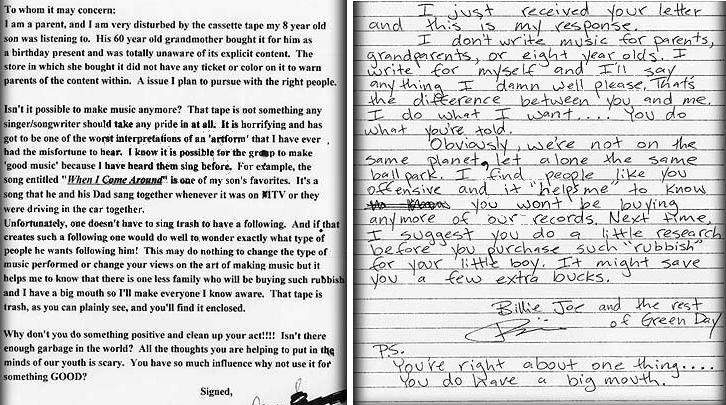 To whom it may concern:
I am a parent, and I am very disturbed by the cassette tape my 8 year old
son was listening to. His 60 year old grandmother bought it for him as
a birthday present and was totally unaware of its explicit content. The
store in which she bought it did not have any ticket or color on it to warn
parents of the content within. A issue I plan to pursue with the right people.
Isn't it possible to make music anymore? That tape is not something any
singer/songwriter should take any pride in at all. It is horrifying and has
got to be one of the worst interpretations of an 'artform' that I have ever
had the misfortune to hear. I know it is possible for the group to make
'good music' because I have heard them sing before. For example, the
song entitled "When I Come Around" is one of my son's favorites. It's a
song that he and his Dad sang together whenever it was on MTV or they
were driving in the car together.
Unfortunately, one doesn't have to sing trash to have a following. And if that
creates such a following one would do well to wonder exactly what type of
people he wants following him! This may do nothing to change the type of
music performed or change your views on the art of making music but it
helps me to know that there is one less family who will be buying such rubbish
and I have a big mouth so I'll make everyone I know aware. That tape is
trash, as you can plainly see, and you'll find it enclosed.
Why don't you do something positive and clean up your act!!!! Isn't there
enough garbage in the world? All the thoughts you are helping to put in the
minds of our youth is scary. You have so much influence why not use it for
something GOOD?
Signed,
I just received your letter
and this is my response.
I don't write music for parents,
grandparents, or eight year olds. I
write for myself and I'll say
anything I damn well please. That's
the difference between you and me.
I do what I want.... You do
what you're told.
Obviously, we're not on the
same planet, let alone the same
ballpark. I find people like you
offensive and it "helps me" to know
you won't be buying
anymore of our records. Next time,
I suggest you do a little research
before you purchase such "rubbish"
for your little boy. It might save
you a few extra bucks.
Billie Joe and the rest
of Green Day
P.S.
You're right about one thing....
You do have a big mouth.